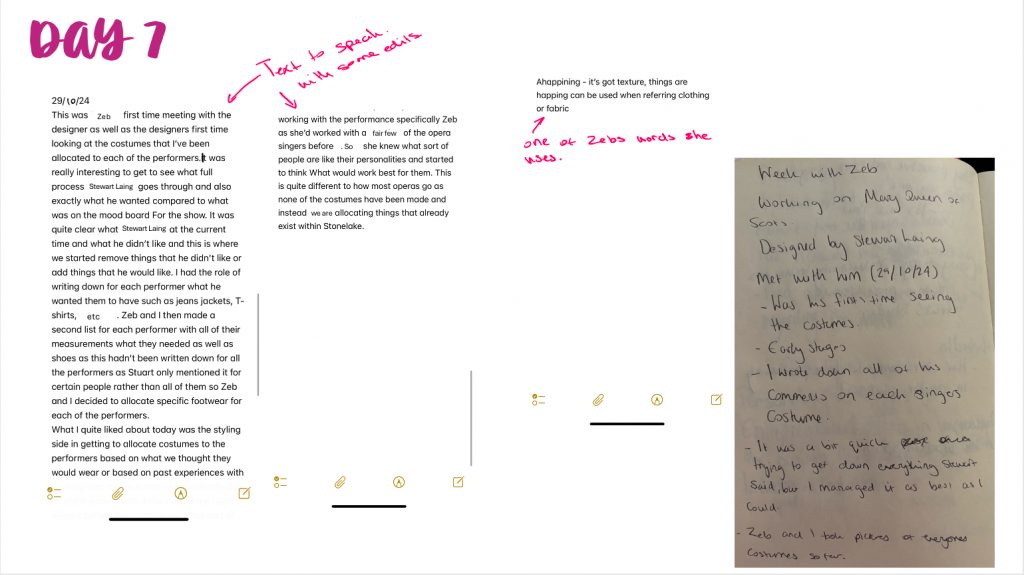 DAY 7
Text to speak.
with some edits
29/10/24
This was Zeb first time meeting with the
designer as well as the designers first time
looking at the costumes that I've been
allocated to each of the performers.It was
really interesting to get to see what full
process Stewart Laing goes through and also
exactly what he wanted compared to what
was on the mood board For the show. It was
quite clear what Stewart Laing at the current
time and what he didn't like and this is where
we started remove things that he didn't like or
add things that he would like. I had the role of
writing down for each performer what he
wanted them to have such as jeans jackets, T-
shirts, etc . Zeb and I then made a
second list for each performer with all of their
measurements what they needed as well as
shoes as this hadn't been written down for all
the performers as Stuart only mentioned it for
certain people rather than all of them so Zeb
and I decided to allocate specific footwear for
each of the performers.
What I quite liked about today was the styling
side in getting to allocate costumes to the
performers based on what we thought they
would wear or based on past experiences with
working with the performance specifically Zeb
as she'd worked with a fair few of the opera
singers before . So she knew what sort of
people are like their personalities and started
to think What would work best for them. This
is quite different to how most operas go as
none of the costumes have been made and
instead we are allocating things that already
exist within Stonelake.
Ahappining - it's got texture, things are
happing can be used when referring clothing
or fabric
one of Zebs words she
uses.
Week with Zeb
Working on Mary Queen of
Scots.
Designed by Stewart Laing
Met with him (29/10/24)
- Was his first time seeing
the costumes.
- Early stages
- I wrote down all of his
comments on each singers
Costume.
- It was a bit quick
trying to get down everything Stewart
said, but I managed it as best as I
could.
- Zeb and I took pictures of everyones
costumes so far.